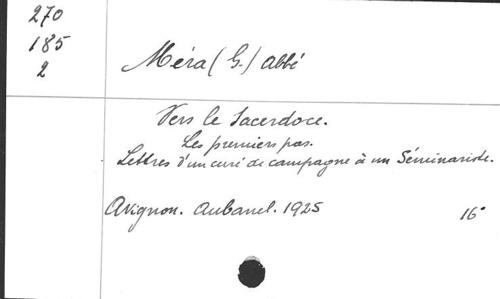 270
185
2
Méra (G.) abbé
Vers le Sacerdoce.
Les premiers pas.
Lettres d'un curé de campagne à un Séminariste.
Avignon. Aubanel. 1925
16°